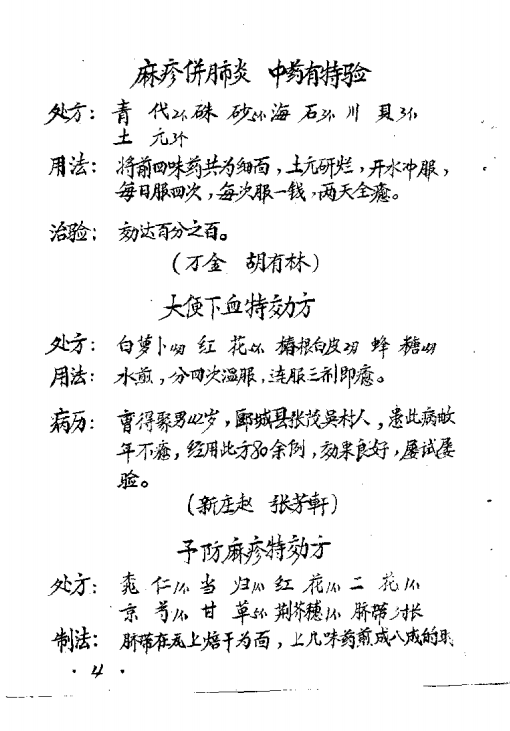 麻疹併肺炎 中药有特验
处方：青 代 硃 砂 海 石 川 贝
土 元
用法：将前四味药共为细面，土元研烂，开水冲服，
每日服四次，每次服一钱，两天全癒。
治验：効达百分之百。
（万金 胡有林）
大便下血特効方
处方：白萝卜 红 花 椿根白皮 蜂 糖
用法：水煎，分四次温服，连服三剂即癒。
病历：曹得聚男42岁，郾城县张茂吴村人，患此病
年不癒，经用此方80余例，効果良好，屡试屡
验。
（新庄赵 张芳軒）
予防麻疹特効方
处方：桃 仁 当 归 红 花 二 花
京 芍 甘 草 荆芥穗 脐带 寸长
制法：脐带在瓦上焙干为面，上几味药煎成八成的
· 4 ·